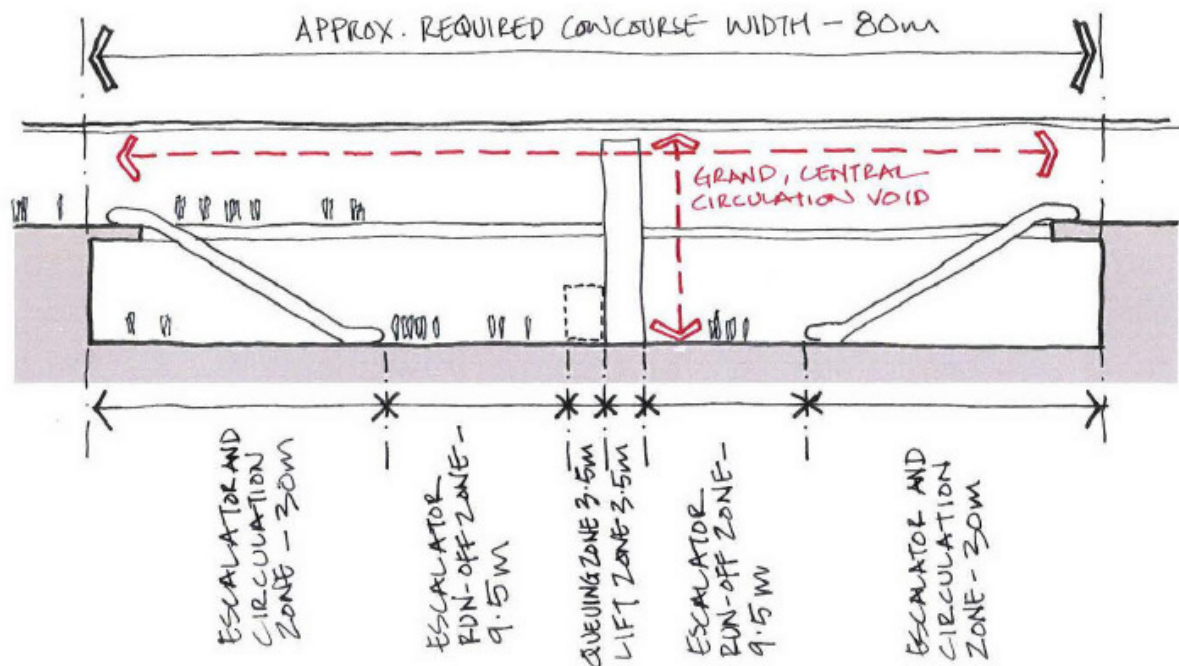 APPROX. REQUIRED CONCOURSE WIDTH - 80m
GRAND, CENTRAL
CIRCULATION VOID
ESCALATOR AND
CIRCULATION
ZONE - 30m
ESCALATOR
RUN-OFF ZONE-
9.5m
QUEUING ZONE 3.5m
LIFT ZONE 3.5m
ESCALATOR
RUN-OFF ZONE-
9.5m
ESCALATOR AND
CIRCULATION
ZONE - 30m